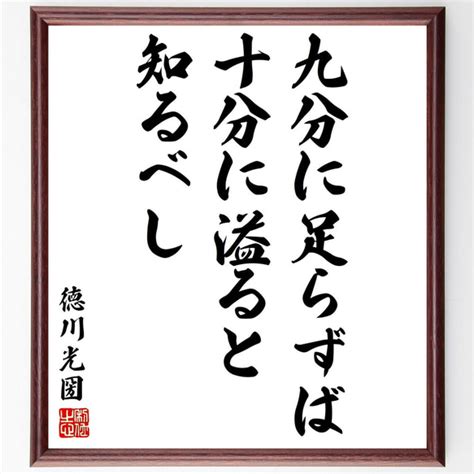 九分に足らずば
十分に溢ると
知るべし
徳川光圀